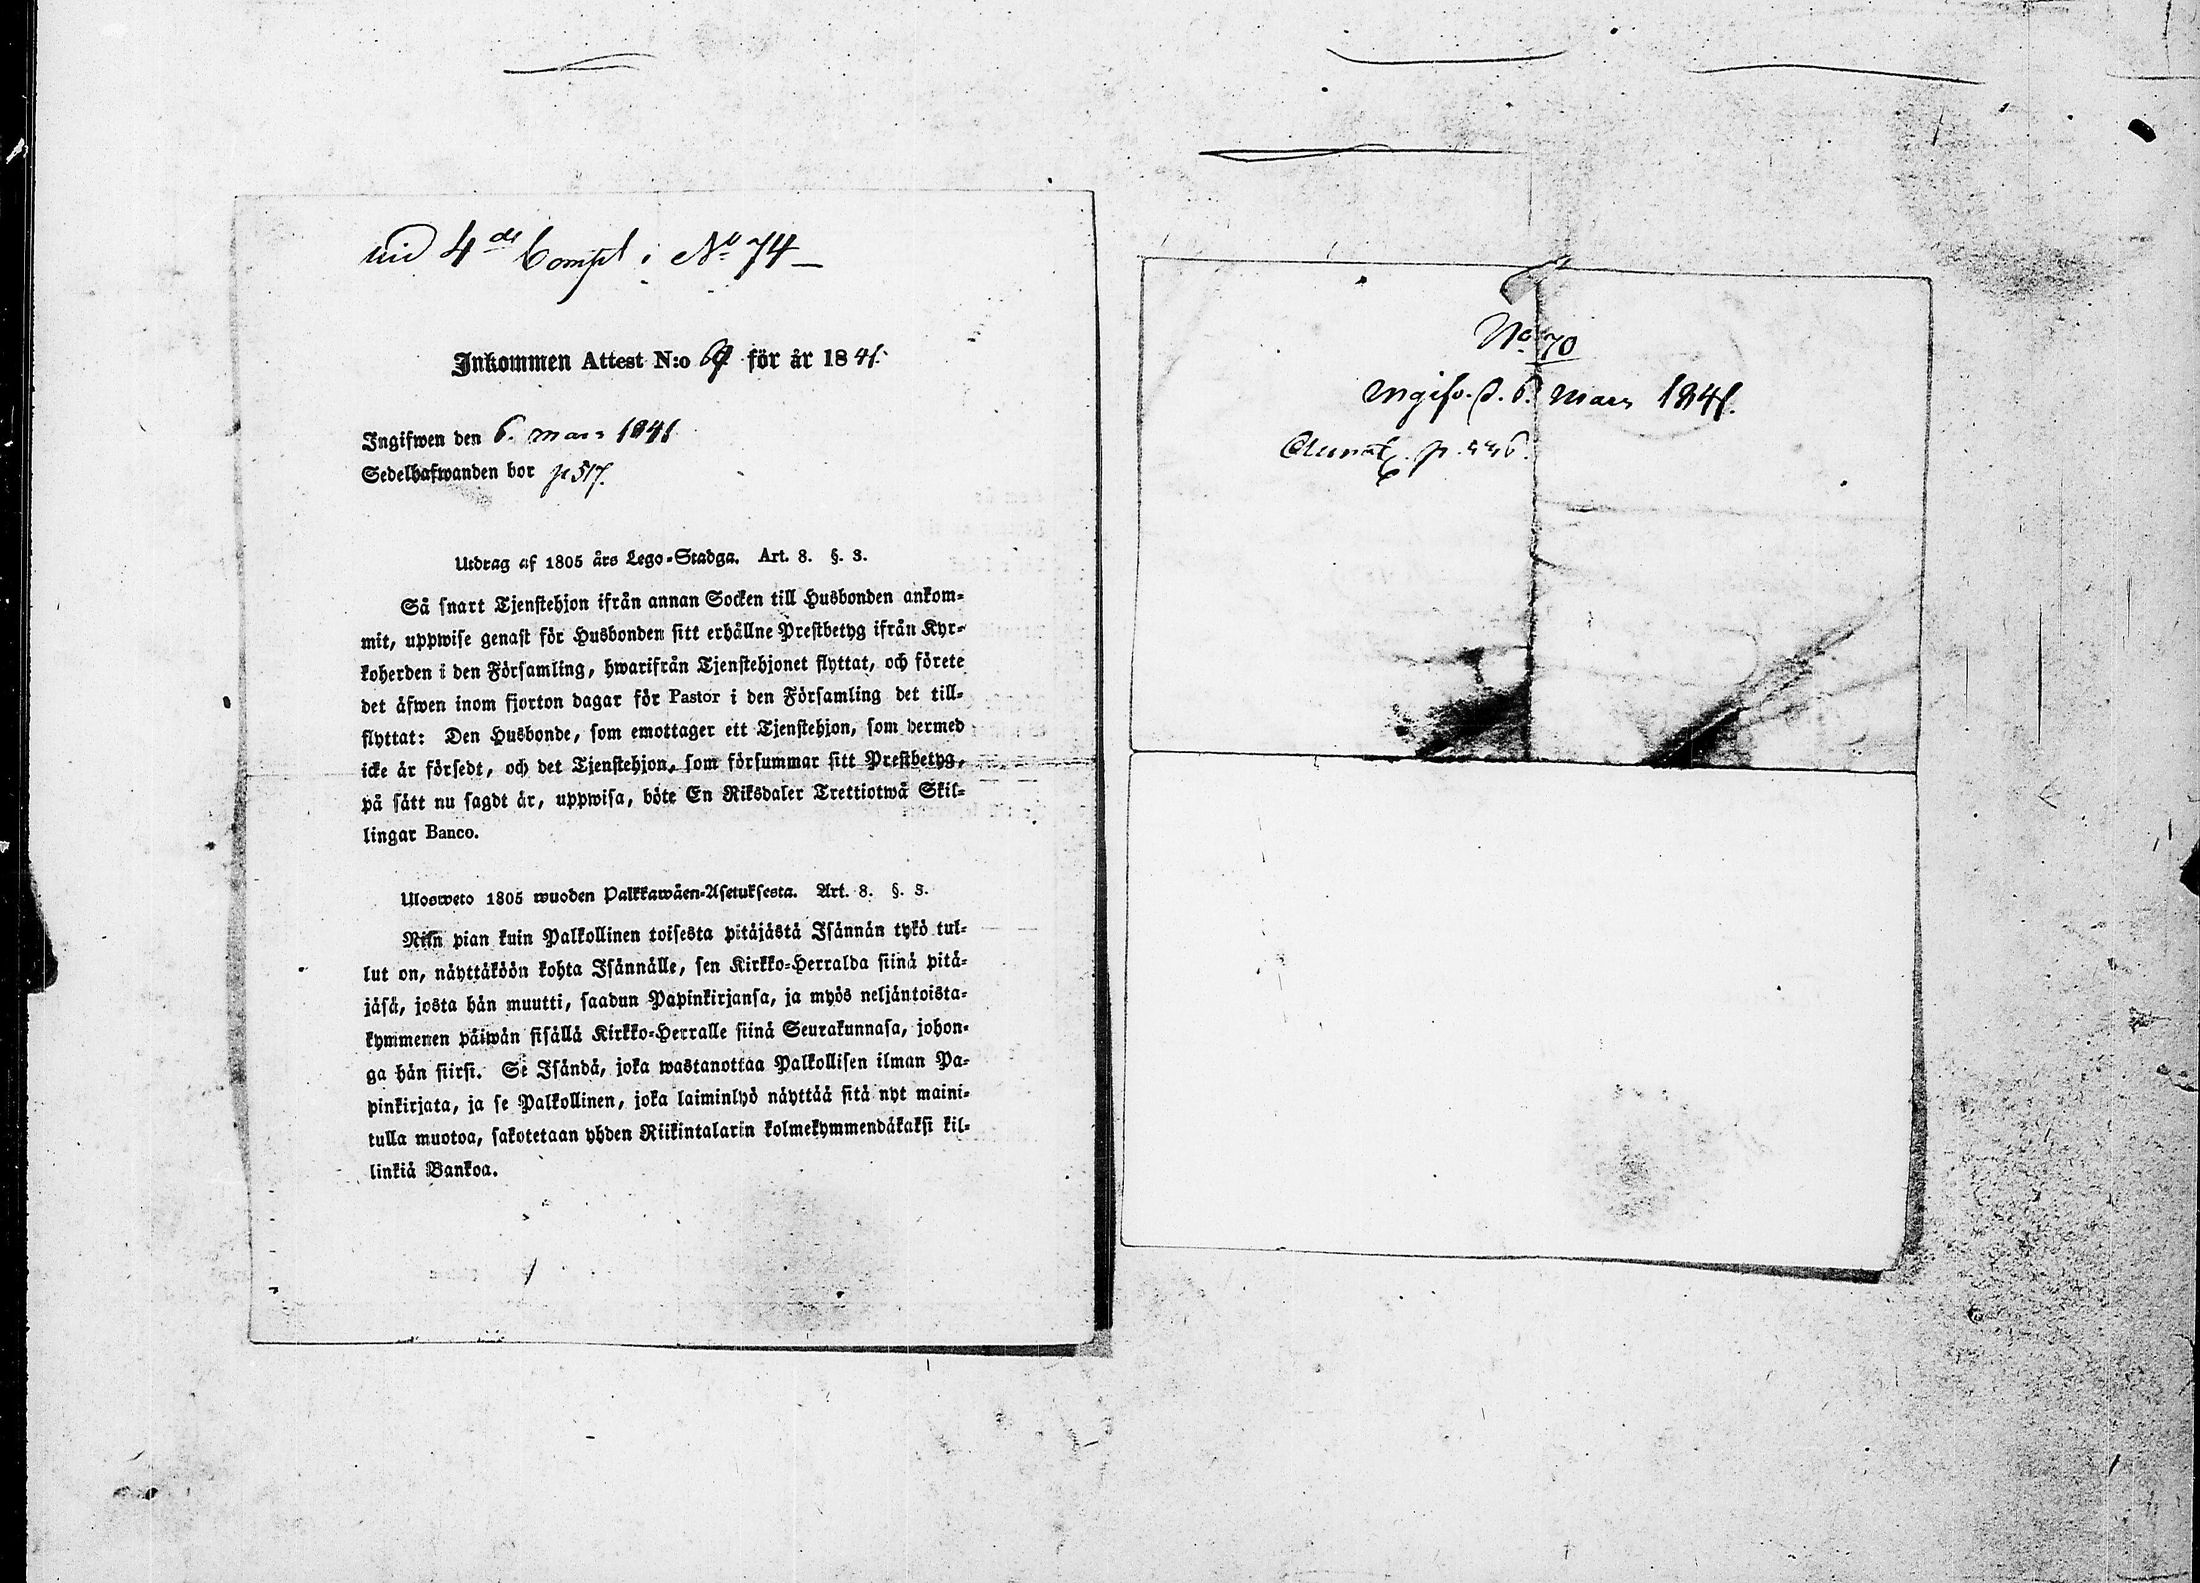 vid 4de Compl: No 74
Inkommen Attest N:o 69 för år 1841.
Ingifwen den 6. mars 1841
Sedelhafwanden bor p 517.
Utdrag af 1805 års Lego-Stadga. Art. 8. §. 3.
Så snart Tjenstehjon ifrån annan Socken till Husbonden ankom-
mit, uppwise genast för Husbonden sitt erhållne Prestbetyg ifrån Kyr-
koherden i den Församling, hwarifrån Tjenstehjonet flyttat, och förete
det äfwen inom fjorton dagar för Pastor i den Församling det till-
flyttat: Den Husbonde, som emottager ett Tjenstehjon, som dermed
icke är försedt, och det Tjenstehjon, som försummar sitt Prestbetyg,
på sätt nu sagdt är, uppwisa, böte En Riksdaler Trettiotwå Skil-
lingar Banco.
Ulosweto 1805 wuoden Palkkawäen-Asetuksesta. Art. 8. §. 3.
Niin pian kuin Palkollinen toisesta pitäjästä Isännän tykö tul-
lut on, näyttäköön kohta Isännälle, sen Kirkko-Herralda siinä pitä-
jäsä, josta hän muutti, saadun Papinkirjansa, ja myös neljäntoista-
kymmenen päiwän sisällä Kirkko-Herralle siinä Seurakunnasa, johon-
ga hän siirsi. Se Isändä, joka wastanottaa Palkollisen ilman Pa-
pinkirjata, ja se Palkollinen, joka laiminlyö näyttää sitä nyt maini-
tulla muotoa, sakotetaan yhden Riikintalarin kolmekymmendäkaksi kil-
linkiä Bankoa.
No 70
ingifv. d. 6. Mars 1841.
p. 446.